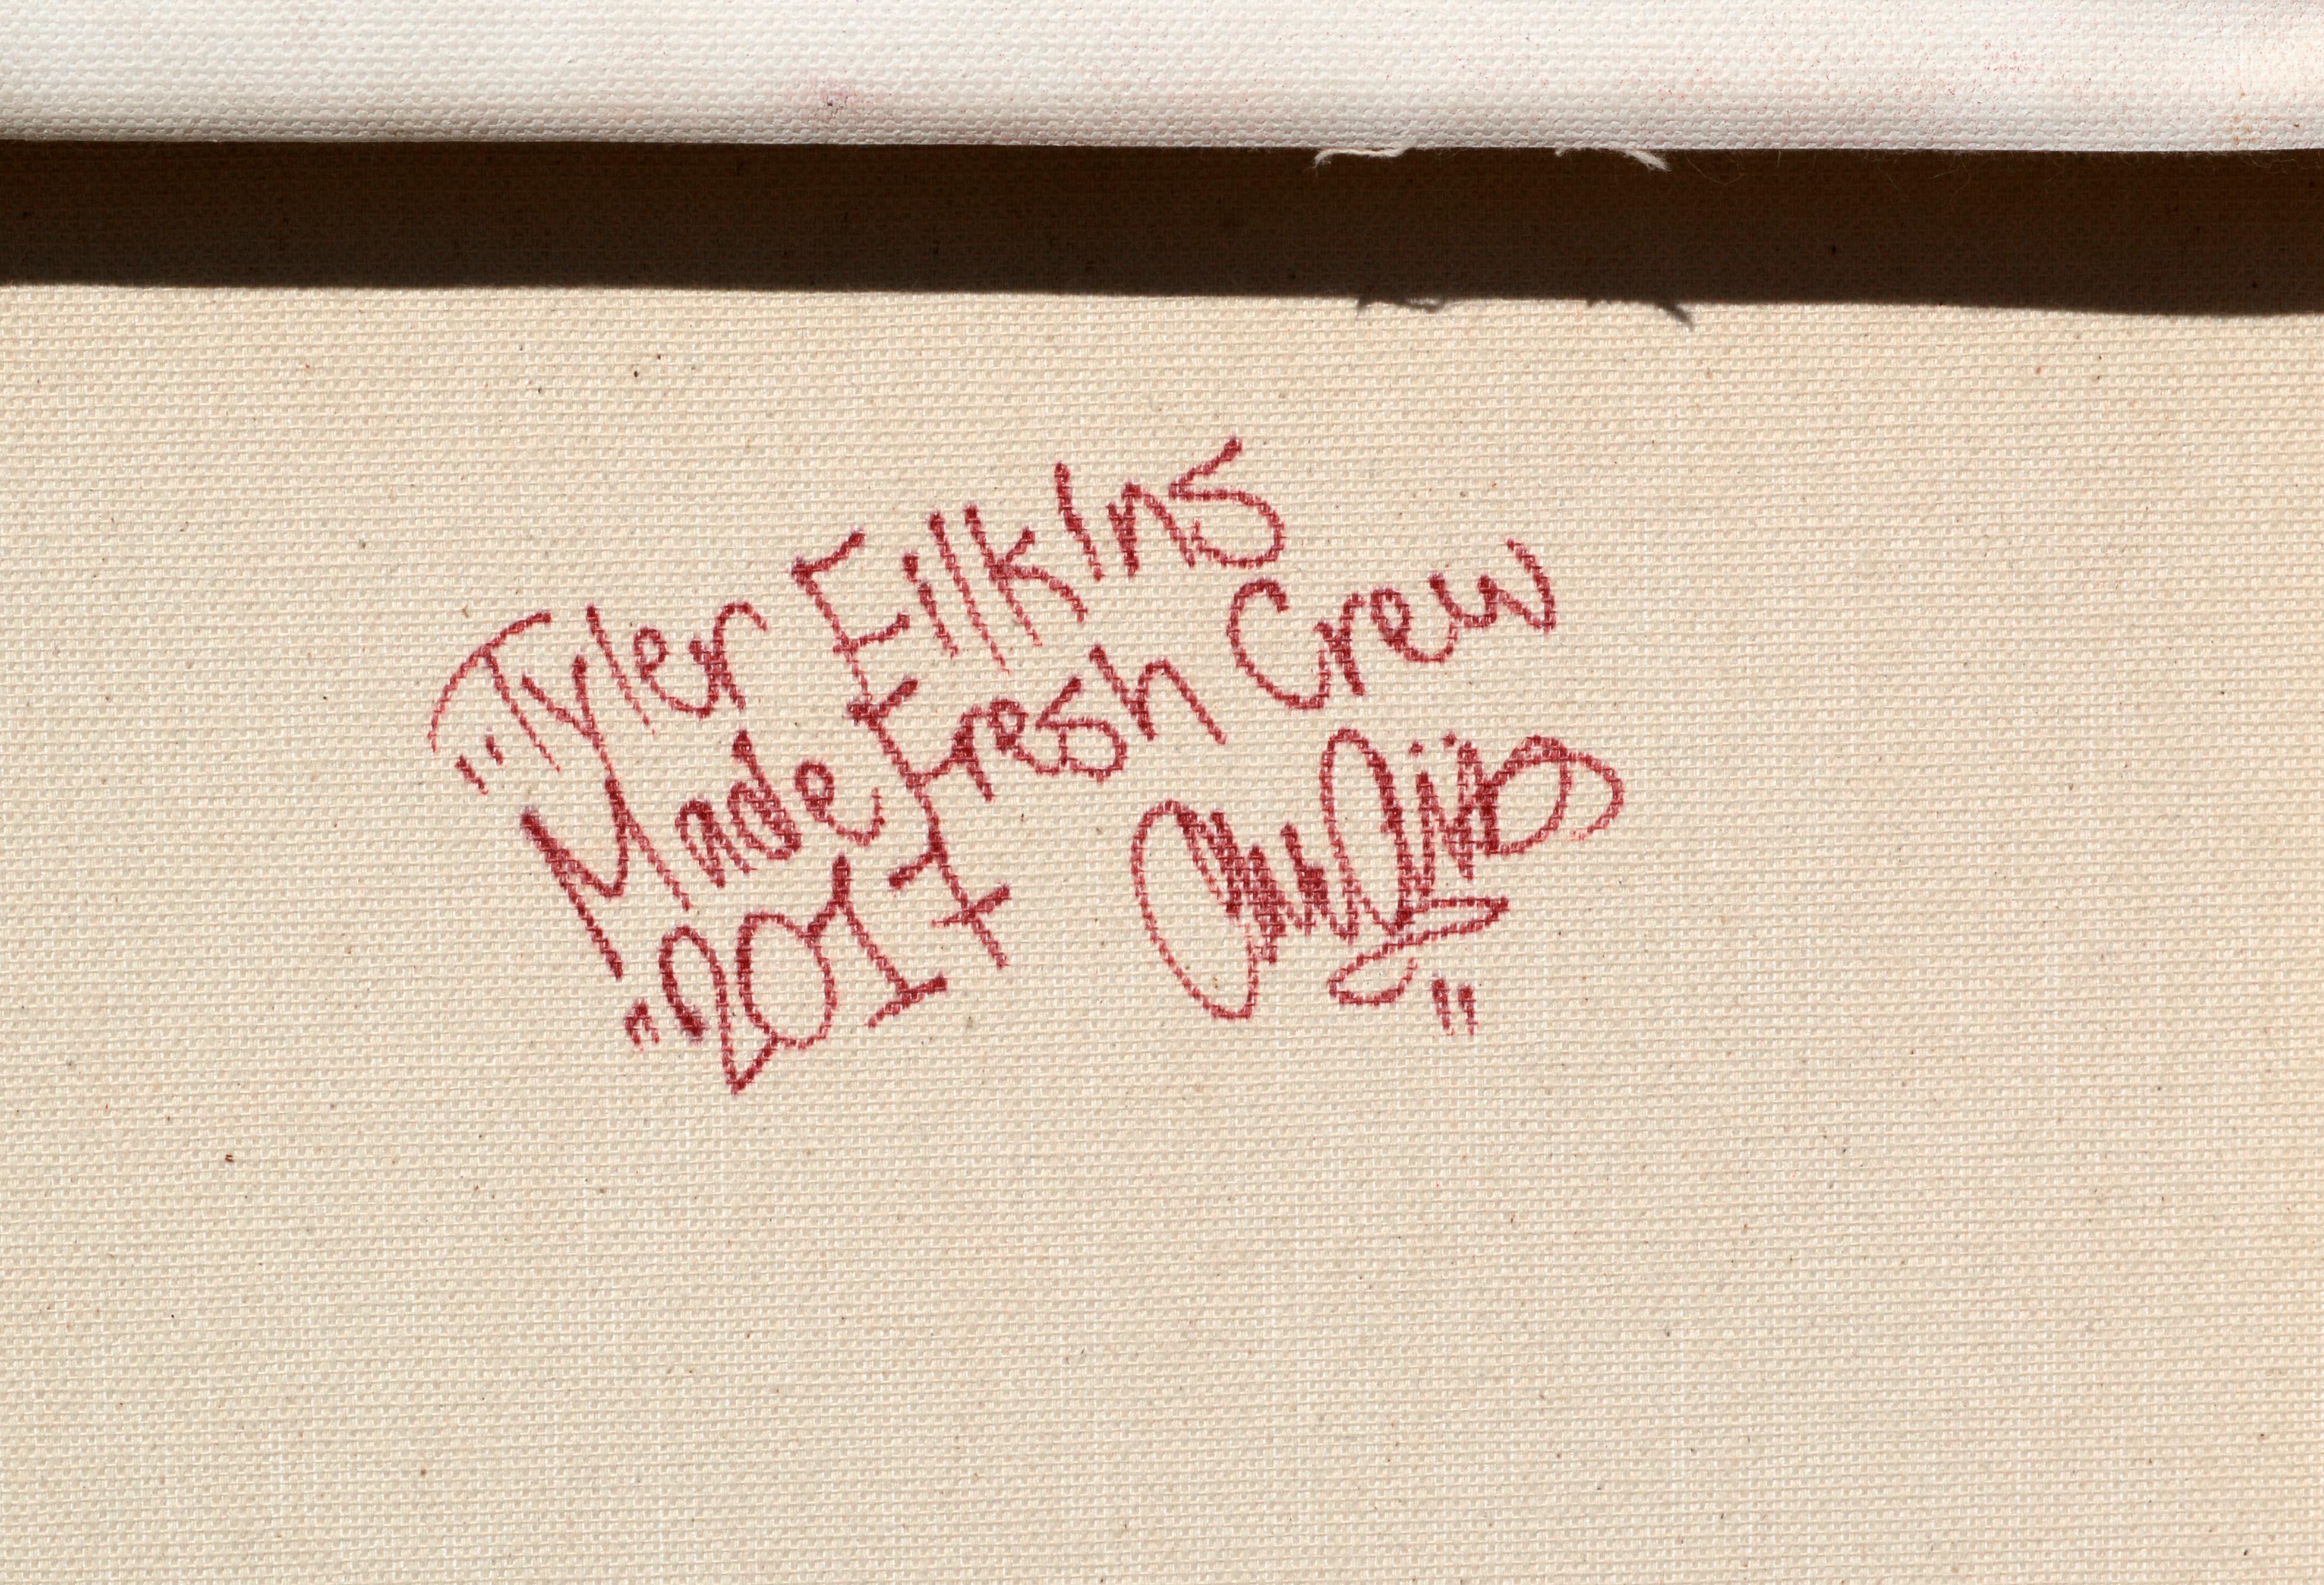 "Tyler Filkins
Made Fresh Crew
"2017 "